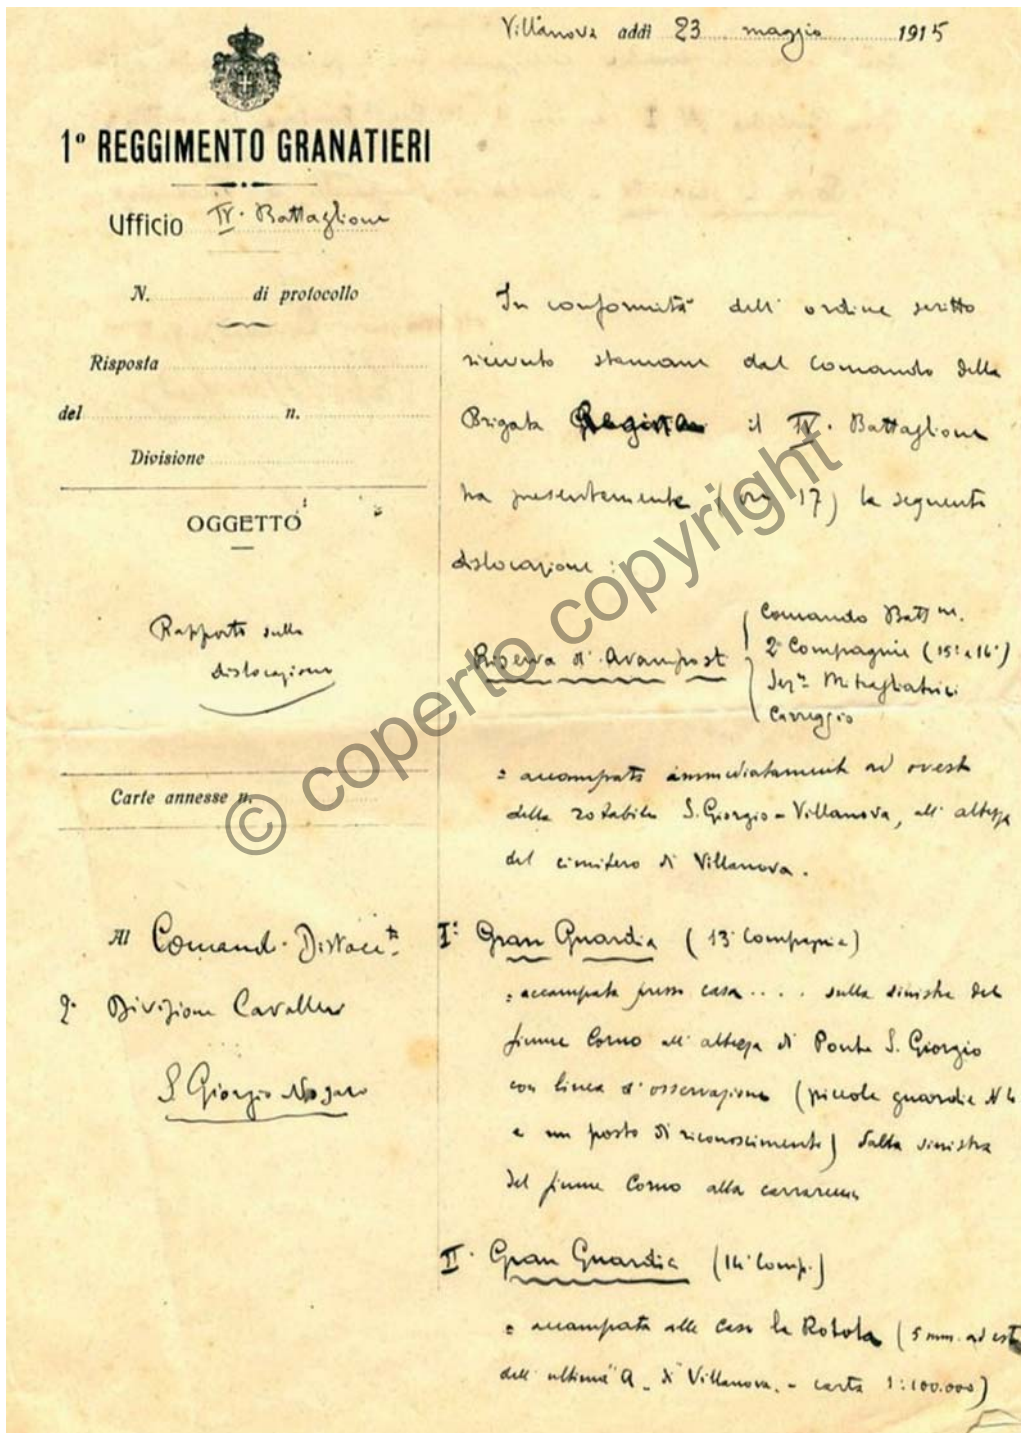 Villanova addì 23 maggio 1915
1º REGGIMENTO GRANATIERI
Ufficio IV. Battaglione
N. di protocollo
Risposta
del n.
Divisione
OGGETTO
Rapporto sulla
dislocazione
Carte annesse n.
Al Comand. Distacc.to
Divisione Cavalleria
S. Giorgio Nogaro
In conformità dell'ordine scritto
ricevuto stamane dal Comando della
Brigata il IV. Battaglione
ha presentemente (ore 17) la seguente
dislocazione:
Riserva d'Avamposti
Comando Battne.
2 Compagnie (15ª e 16ª)
Sezne Mitragliatrici
Carreggio
= accampati immediatamente ad ovest
della rotabile S. Giorgio - Villanova, all'altezza
del cimitero di Villanova.
Iª Gran Guardia (13ª Compagnia)
= accampata presso casa .... sulla sinistra del
fiume Corno all'altezza di Ponte S. Giorgio
con linea d'osservazione (piccole guardie N 4
e un posto di riconoscimento) dalla sinistra
del fiume Corno alla carrareccia
II. Gran Guardia (14ª Comp.)
= accampata alle Case la Rotola (5 mm. ad est
dell'ultima "A" di Villanova. - carta 1:100.000)
© coperto copyright